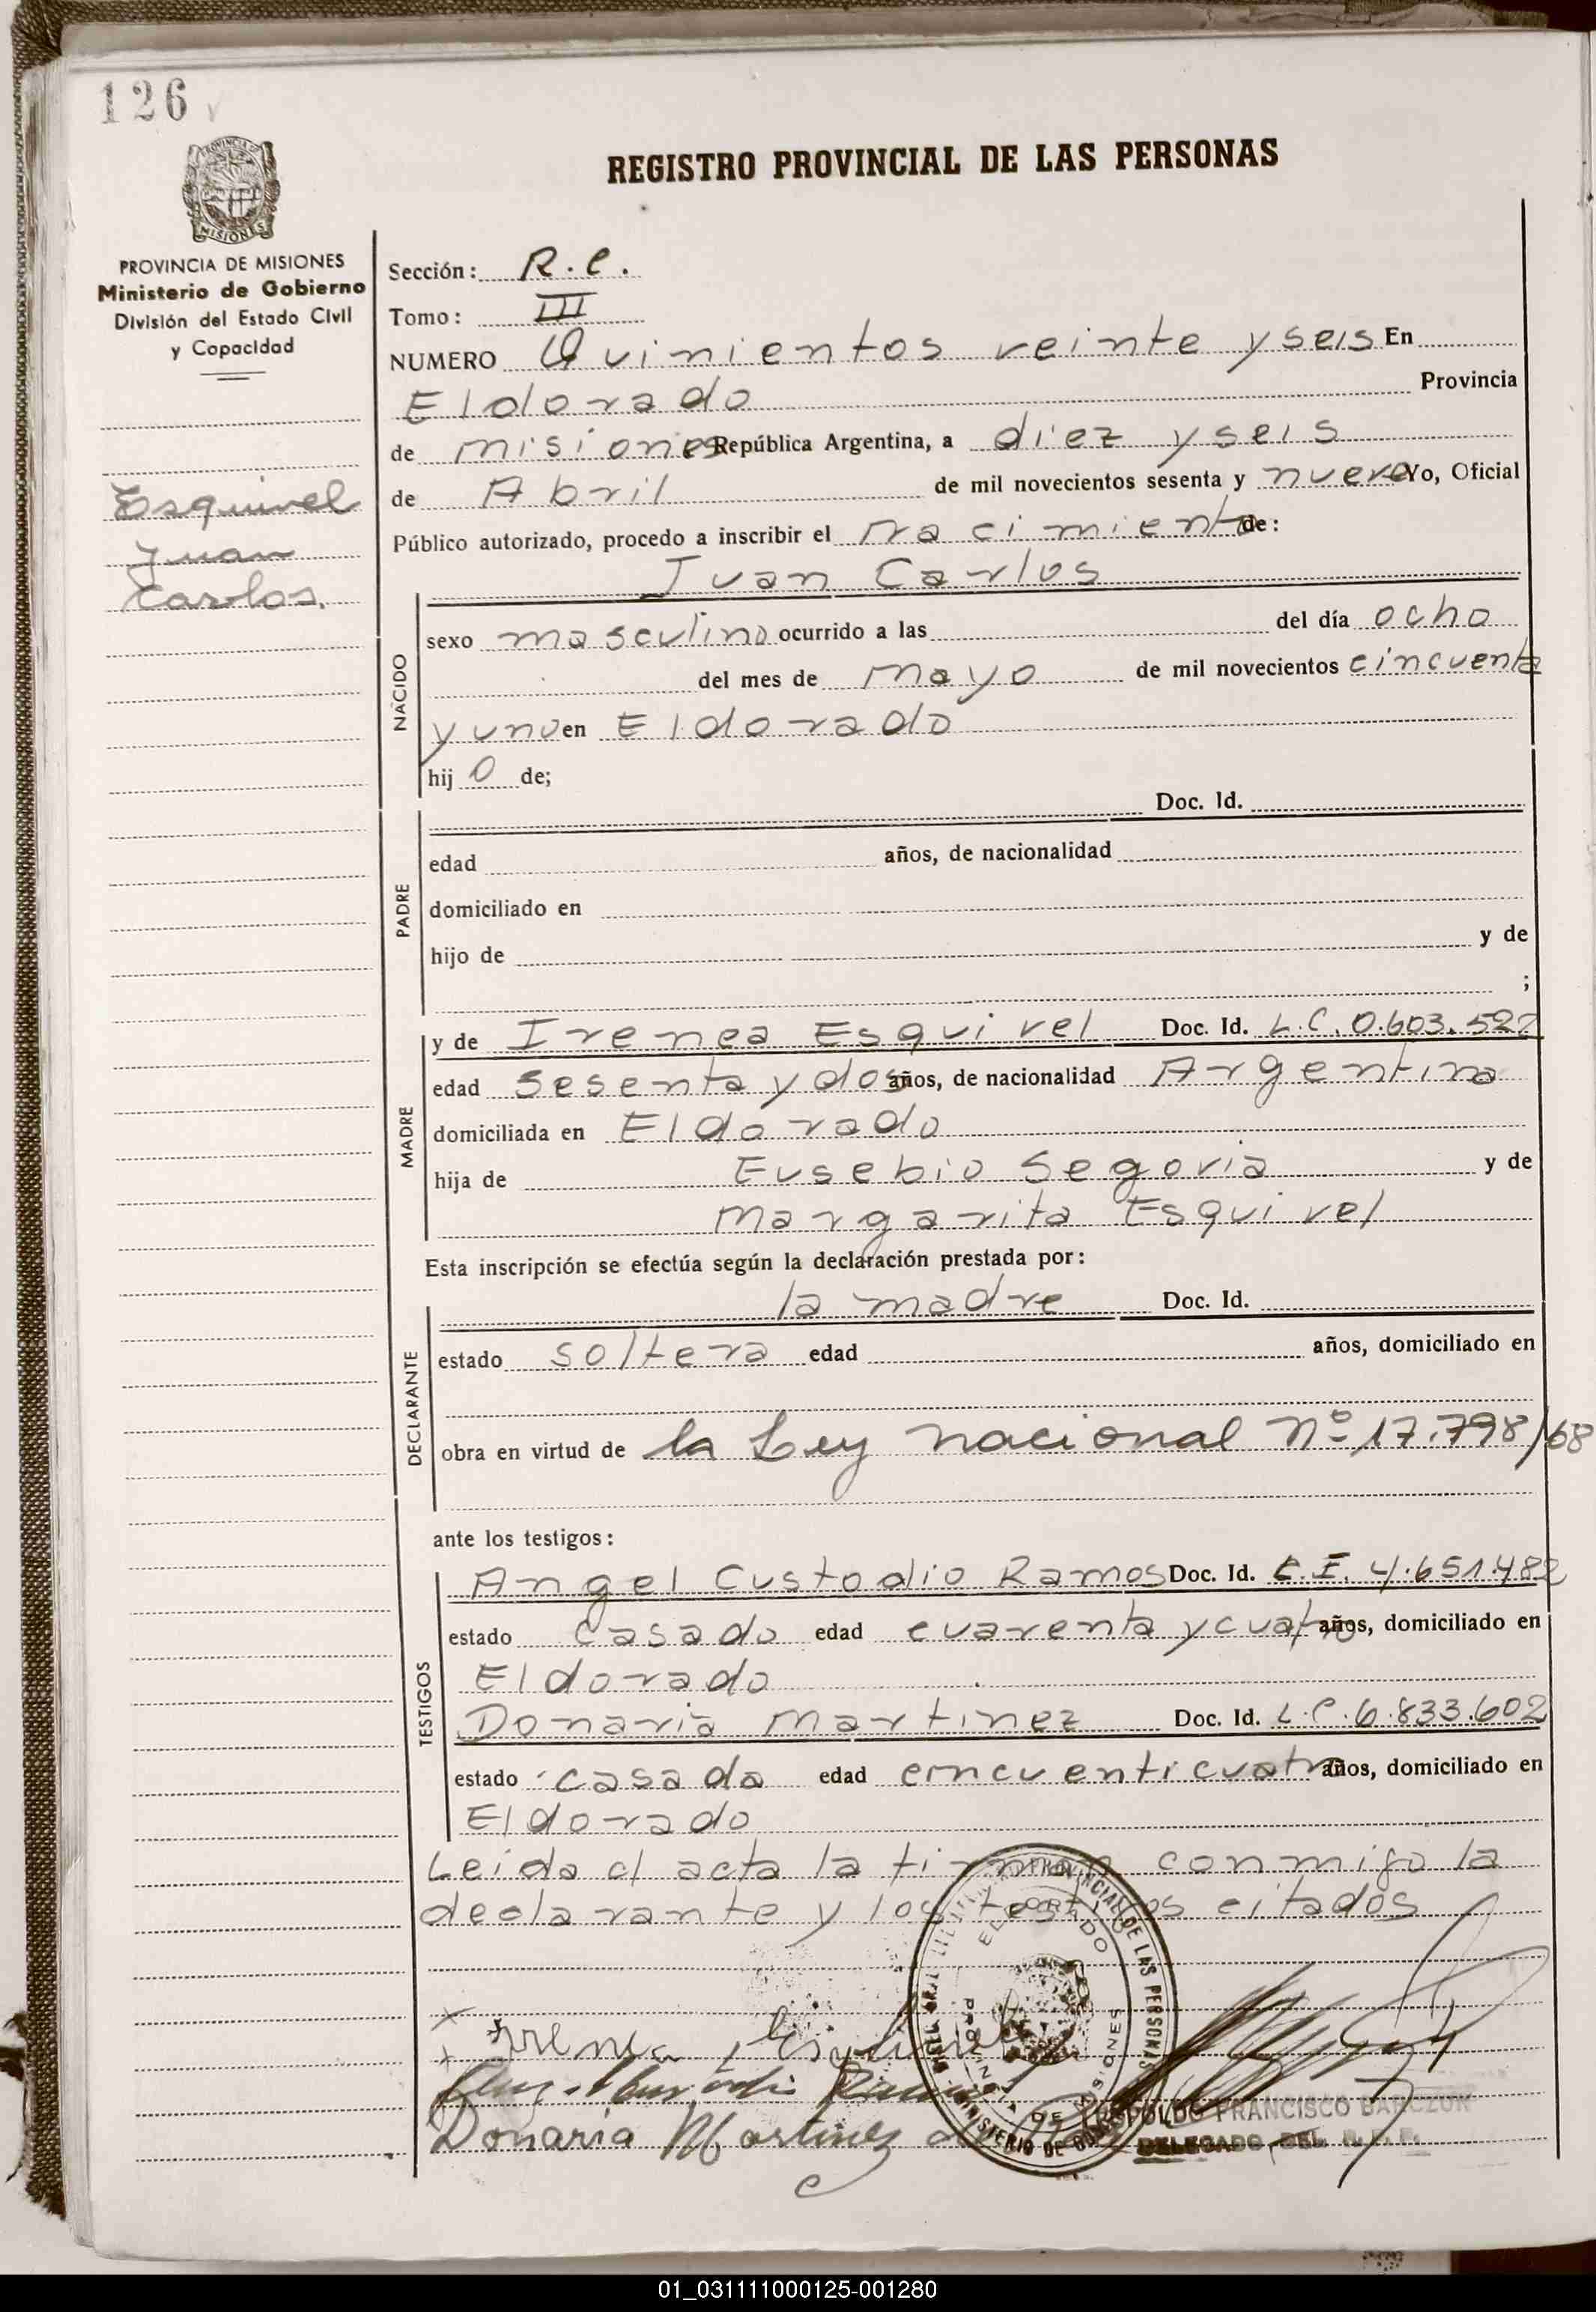 126
REGISTRO PROVINCIAL DE LAS PERSONAS
PROVINCIA DE MISIONES
Ministerio de Gobierno
División del Estado Civil
y Capacidad
Esquivel
Juan
Carlos.
Sección: R.C.
Tomo: III
NUMERO Quinientos veinte y seis En
Eldorado Provincia
de misiones República Argentina, a diez y seis
de Abril de mil novecientos sesenta y nueve Yo, Oficial
Público autorizado, procedo a inscribir el nacimiento de:
Juan Carlos
NACIDO
sexo masculino ocurrido a las del día ocho
del mes de mayo de mil novecientos cincuenta
y uno en Eldorado
hij o de;
PADRE
Doc. Id.
edad años, de nacionalidad
domiciliado en
hijo de y de
;
MADRE
y de Irenea Esquivel Doc. Id. L.C. 0.603.522
edad sesenta y dos años, de nacionalidad Argentina
domiciliada en Eldorado
hija de Eusebio Segovia y de
Margarita Esquivel
Esta inscripción se efectúa según la declaración prestada por:
DECLARANTE
la madre Doc. Id.
estado soltera edad años, domiciliado en
obra en virtud de la Ley nacional Nº 17.798/68
ante los testigos:
TESTIGOS
Angel Custodio Ramos Doc. Id. C.I. 4.651.482
estado casado edad cuarenta y cuatro años, domiciliado en
Eldorado
Donaria Martinez Doc. Id. L.C. 6.833.602
estado casada edad cincuenticuatro años, domiciliado en
Eldorado
Leida el acta la firman conmigo la
declarante y los testigos citados
Irenea Esquivel
Donaria Martinez de
PROVINCIAL DE LAS PERSONAS
ELDORADO
PROVINCIA DE MISIONES
MINISTERIO DE
LEOPOLDO FRANCISCO BARCZUK
DELEGADO DEL R. P. P.
01_031111000125-001280